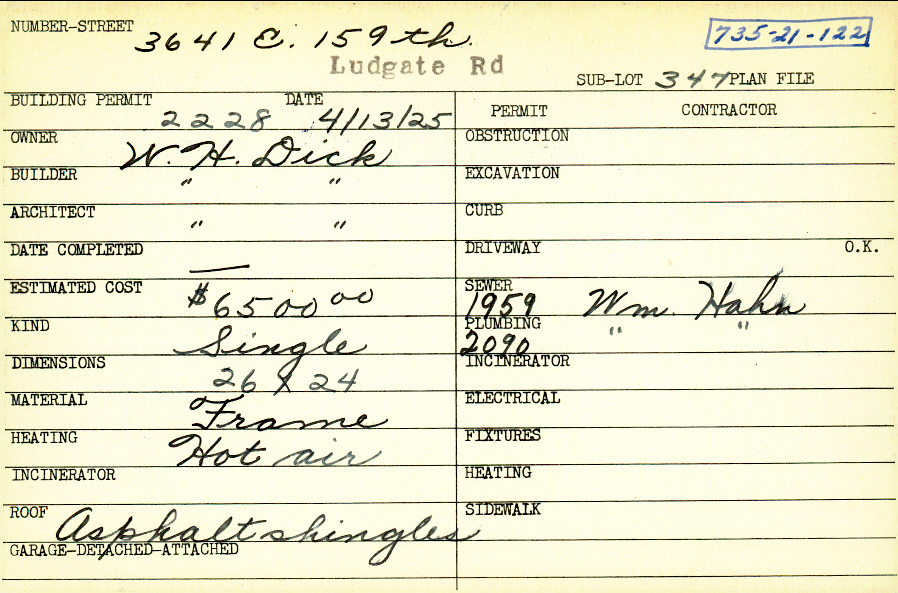 NUMBER-STREET 3641 E. 159th. 735-21-122
Ludgate Rd
SUB-LOT 347 PLAN FILE
BUILDING PERMIT 2228 DATE 4/13/25
PERMIT CONTRACTOR
OWNER W. H. Dick
OBSTRUCTION
BUILDER " "
EXCAVATION
ARCHITECT " "
CURB
DATE COMPLETED —
DRIVEWAY O.K.
ESTIMATED COST $6500 00
SEWER 1959 Wm. Hahn
KIND Single
PLUMBING 2090 " "
DIMENSIONS 26 X 24
INCINERATOR
MATERIAL Frame
ELECTRICAL
HEATING Hot air
FIXTURES
INCINERATOR
HEATING
ROOF Asphalt shingles
SIDEWALK
GARAGE-DETACHED-ATTACHED